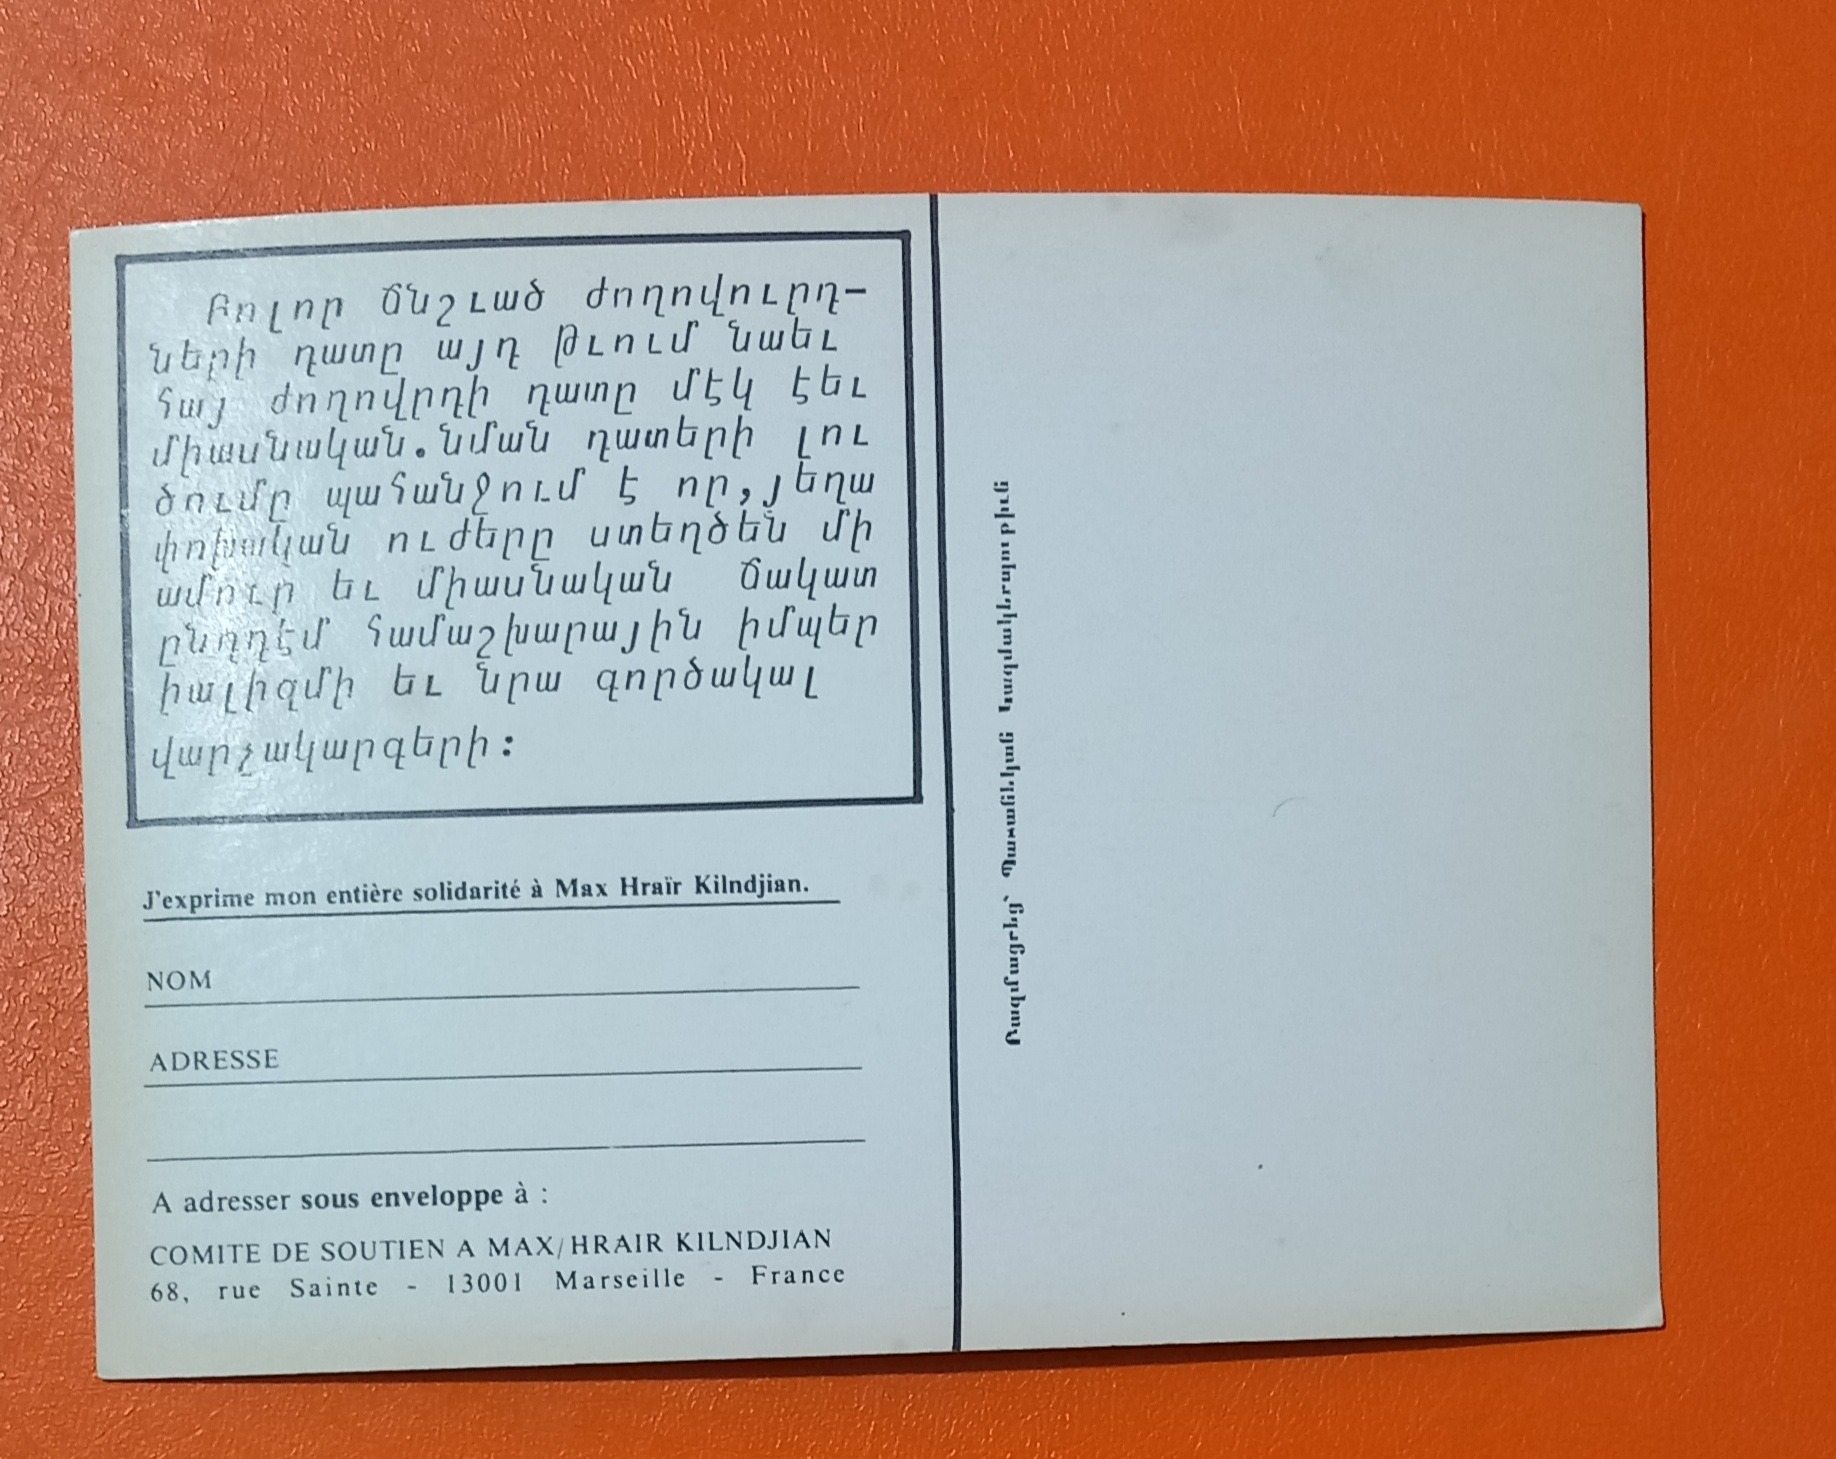 Բոլոր ճնշւած ժողովուրդ-
ների դատը այդ թւում նաեւ
հայ ժողովրդի դատը մէկ է եւ
միասնական. նման դատերի լու
ծումը պահանջում է որ, յեղա
փոխական ուժերը ստեղծեն մի
ամուր եւ միասնական ճակատ
ընդդէմ համաշխարային իմպեր
իալիզմի եւ նրա գործակալ
վարչակարգերի:
J'exprime mon entière solidarité à Max Hraïr Kilndjian.
NOM
ADRESSE
A adresser sous enveloppe à :
COMITE DE SOUTIEN A MAX/HRAIR KILNDJIAN
68, rue Sainte - 13001 Marseille - France
Բազմացրեց՝ Պատանեկան Կազմակերպութիւն